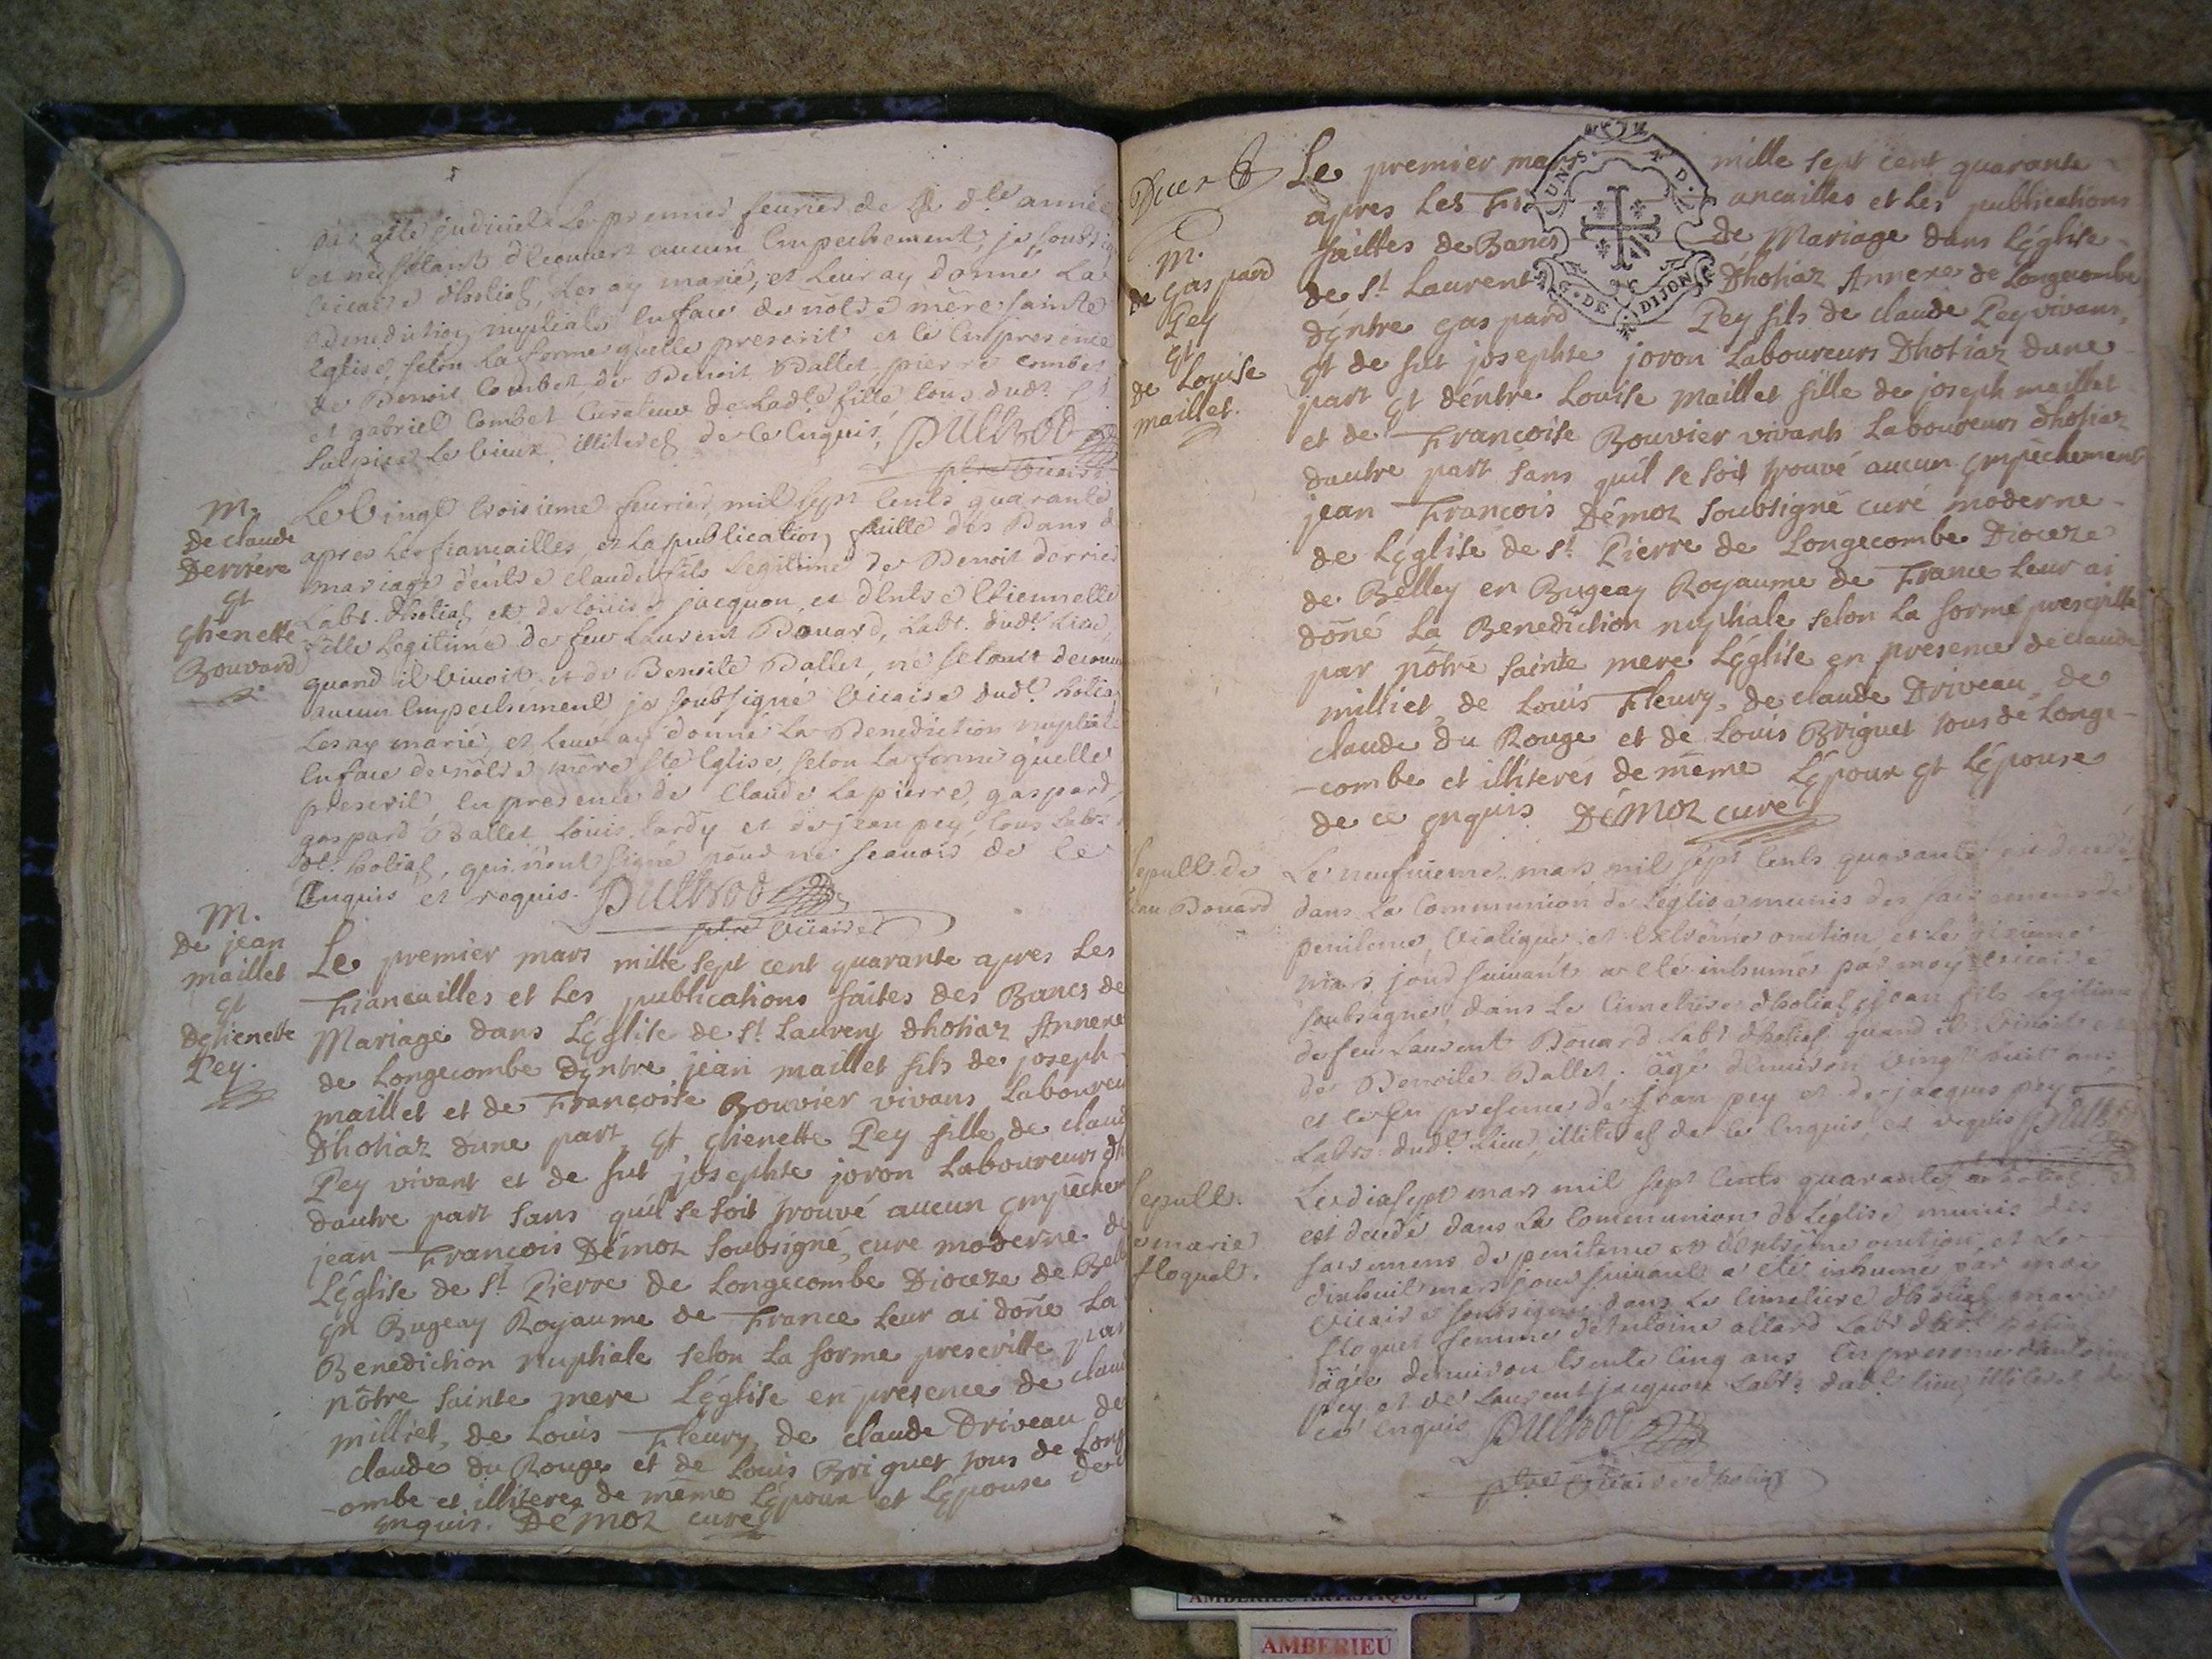 par acte judiciel le premier feurier de la dte année
et ne s'etant decouvert aucun Empechement, je soubsig
vicaire d'hotiaz, Les ay marié, et Leur ay donné La
Benediction nuptiale En face de nôtre mêre sainte
Eglise, selon La forme quelle prescrit, et ce En presence
de Benoit Combet, de Benoit Ballet pierre Combet
et gabriel Combet Curateur de Ladte fille tous dudt St
Sulpice Le vieux illiteres de ce Enquis, DUlliod
ptre vicaire
M.
De claude
Derrière
Et
Ethenette
Bouvard
Le vingt troisieme feurier mil sept Cents quarante
apres les fiancailles, et La publication faitte des Bans de
mariage d'entre claude fils Legitime de Benoit derrier
Labr. d'hotiaz et de Louise jacquon, et dEntre Etiennette
fille Legitime de feu Laurent Bouard, Labr. dudt Lieu
quand il vivoit, et de Benoite Ballet, ne s'etant decouvert
aucun Empechement je soubsigné vicaire dudt hotiaz
Les ay marié, et Leur ay donné La Benediction nuptiale
En face de nôtre mêre Ste Eglise, selon La forme quelle
prescrit, En presence de Claude Lapierre, gaspard,
gaspard Ballet Louis tardy et de jean pey, tous Labrs
dt. hotiaz, qui n'ont signé pour ne scauoir de ce
Enquis et requis. DUlliod
ptre vicaire
M.
De jean
maillet
Et
Dethenette
Pey.
Le premier mars mille sept cent quarante apres Les
Fiancailles et Les publications faites des Bancs de
Mariage dans L'Eglise de St Laurent dhotiaz Annexe
de Longecombe d'Entre jean maillet fils de joseph
maillet et de Francoise Bouvier vivans Laboureur
Dhotiaz dune part, Et Ethenette Pey fille de claude
Pey vivant et de fut josephte joron Laboureurs dh
dautre part sans quil se soit trouvé aucun Empechem
jean François Démoz soubsigné, curé moderne de
L'Eglise de St Pierre de Longecombe Dioceze de Bell
En Bugeay Royaume de France Leur ai doñé La
Benediction nuptiale selon La forme prescritte par
nôtre sainte mere L'église en presence de claud
milliet, de Louis Fleury, de claude Driveau de
claude du Rouge et de Louis Briquet tous de Long
-ombe et illiteres de même L'Epoux et L'Epouse de
Enquis. Démoz curé
M.
de gaspard
Pey
Et
de Louise
maillet.
Le premier mars mille sept cent quarante
apres Les Fiancailles et Les publications
faittes de Bancs de Mariage dans L'église
de St Laurent Dhotiaz Annexe de Longecombe
d'Entre gaspard Pey fils de claude Pey vivans,
Et de fut josephte joron Laboureurs Dhotiaz dune
part Et d'entre Louise maillet fille de joseph maillet
et de Francoise Bouvier vivants Laboureurs dhotiaz
dautre part sans quil se soit trouvé aucun Empêchement
jean François Démoz soubsigné curé moderne
de L'église de St Pierre de Longecombe Dioceze
de Belley en Bugeay Royaume de France Leur ai
doñé La Benediction nuptiale selon La forme prescritte
par nôtre sainte mere L'église en presence de claude
milliet, de Louis Fleury, de claude Driveau, de
claude du Rouge et de Louis Briquet tous de Longe-
-combe et illiterés de même L'époux Et L'épouse
de ce Enquis Démoz curé
UN D. G. DE DIJON
sepult. de
jean Bouard
Le neufuieme mars mil sept Cents quarante est decedé
dans La Communion de L'église munis des sacremens de
penitence, viatique et Extrême onction, et Le dixieme
mars jour suivant a eté inhumé par moy vicaire
soubsigné, dans Le Cimetiere d'hotiaz jean fils Legitime
de feu Laurent Bouard Labr d'hotiaz quand il vivoit et
de Benoite Ballet, âgé d'Environ vingt huit ans
et ce En presence de jean pey et de jacques pey
Labrs. dudt. Lieu, illiteres de ce Enquis et requis DUlliod
sepult.
de marie
floquet.
Le dixsept mars mil sept Cents quarante
est decedé dans La Communion de L'église munis des
sacremens de penitence et d'Extrême onction, et Le
dixhuit mars jour suivant a eté inhumé par moi
vicaire soubsigné dans Le Cimetiere d'hotiaz marie
floquet femme d'Antoine allard Labr dudt hotiaz
âgée d'Environ trente Cinq ans En presence d'antoine
pey et de Laurent jacquon Labrs. dudt. lieu, illiteres de
ce Enquis DUlliod
ptre vicaire d'hotiaz
AMBERIEU ARTISTIQUE
AMBERIEU